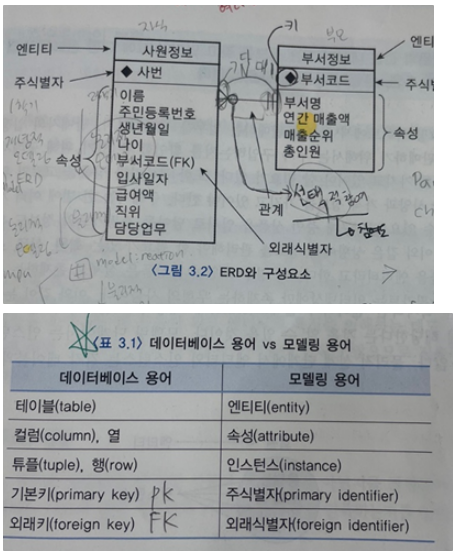 자식
부모
키
엔티티
사원정보
부서정보
엔티
주식별자
◆ 사번
◆ 부서코드
주식별
이름
주민등록번호
생년월일
나이
부서코드(FK)
입사일자
급여액
직위
담당업무
속성
부서명
연간 매출액
매출순위
총인원
속성
관계
선택적 참여
외래식별자
〈그림 3.2〉 ERD와 구성요소
〈표 3.1〉 데이터베이스 용어 vs 모델링 용어
데이터베이스 용어 모델링 용어
테이블(table) 엔티티(entity)
컬럼(column), 열 속성(attribute)
튜플(tuple), 행(row) 인스턴스(instance)
기본키(primary key) PK 주식별자(primary identifier)
외래키(foreign key) FK 외래식별자(foreign identifier)